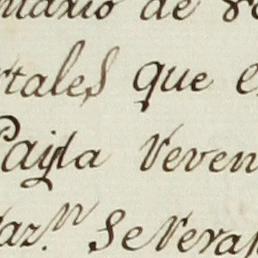 ntario de
rtales que e
Cayla Veven
az.ⁿ Se Vera